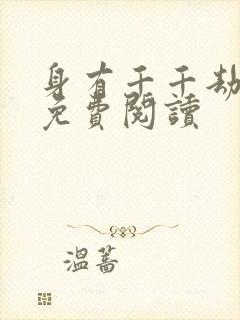 身有千千劫
免費閱讀
溫蒿